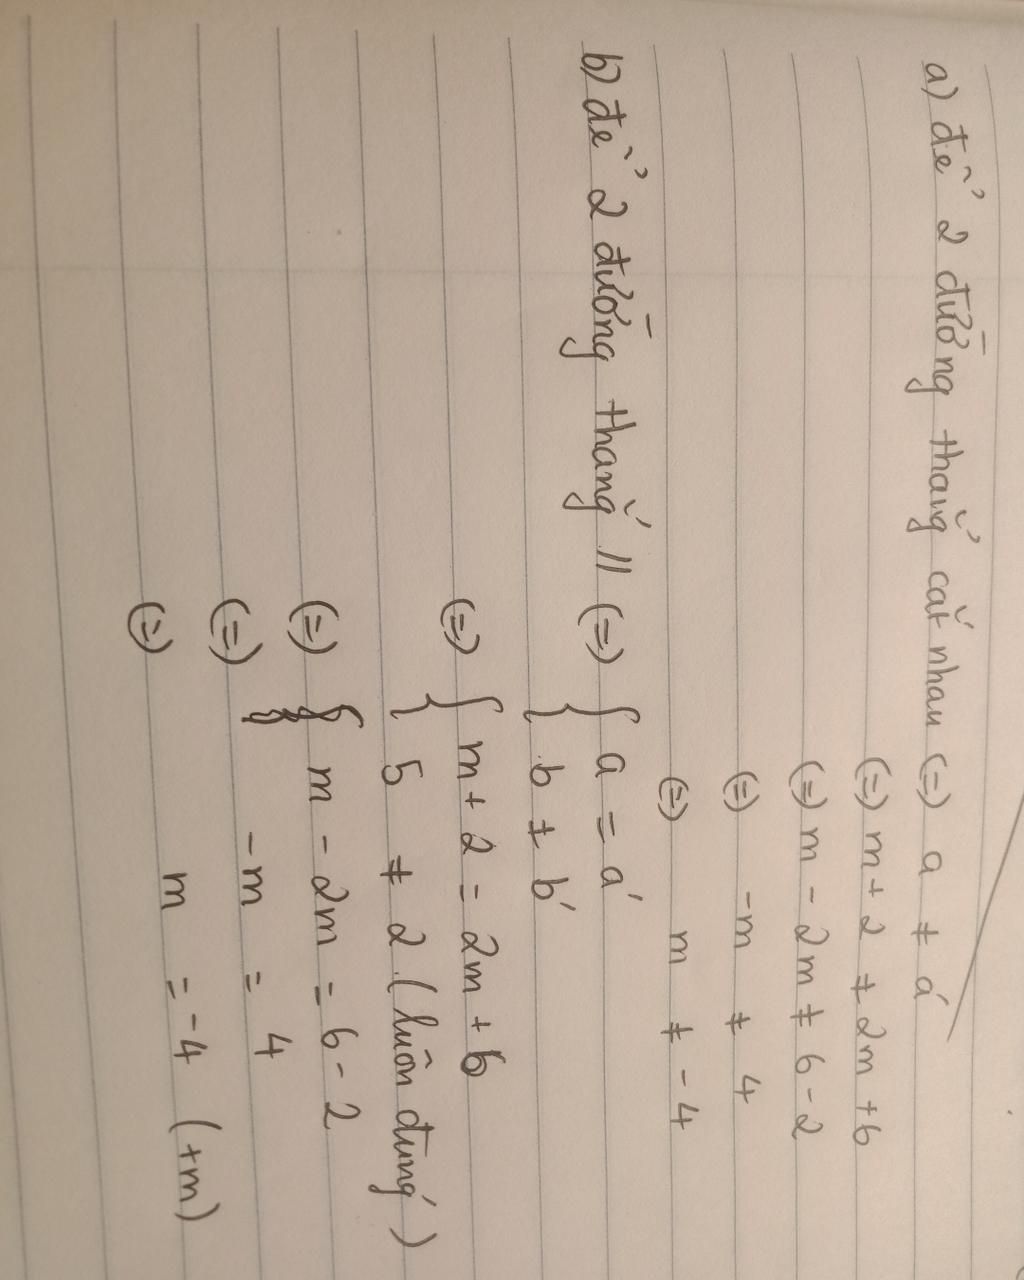 a) để 2 đường thẳng cắt nhau (=) a ≠ a'
(=) m + 2 ≠ 2m + 6
(=) m - 2m ≠ 6 - 2
(=) -m ≠ 4
(=) m ≠ -4
b) để 2 đường thẳng // (=) { a = a'
b ≠ b'
(=) { m + 2 = 2m + 6
5 ≠ 2 (luôn đúng)
(=) { m - 2m = 6 - 2
(=) -m = 4
(=) m = -4 (tm)